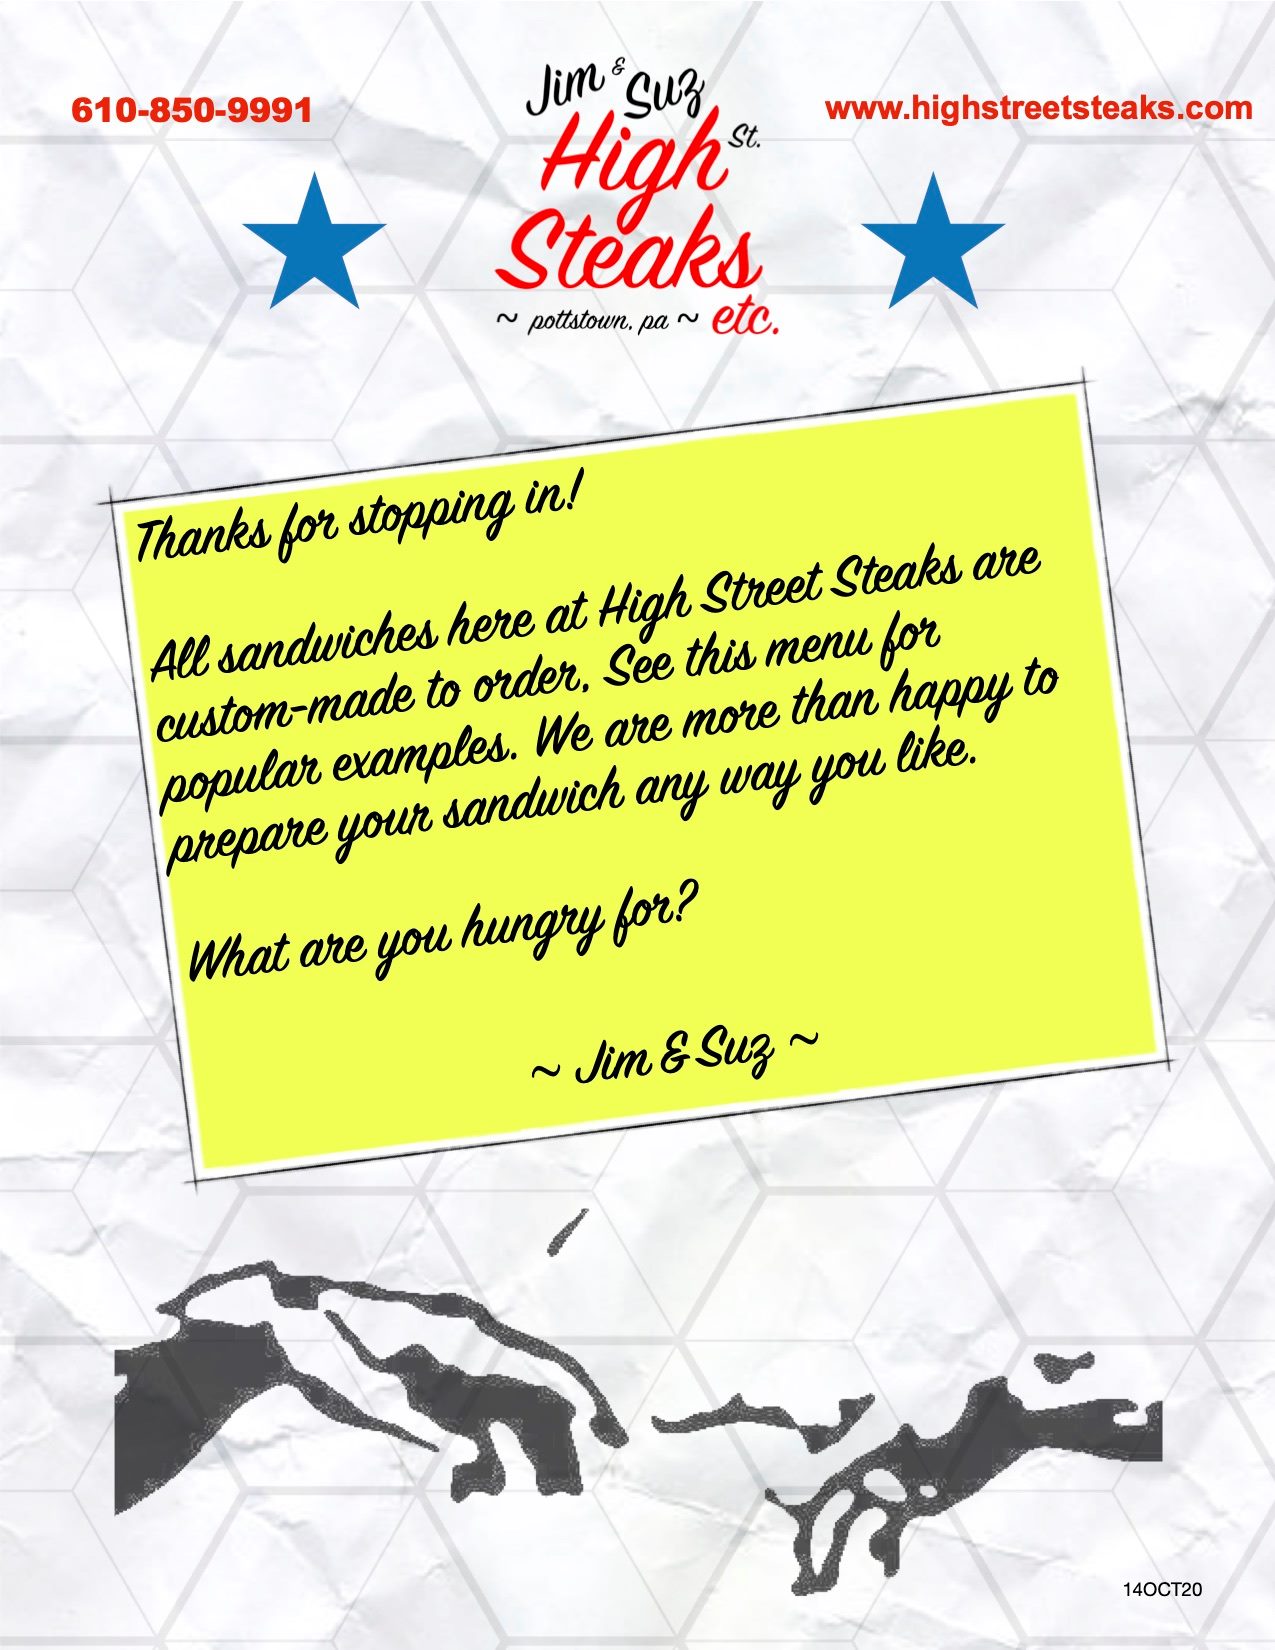 610-850-9991
Jim & Suz
www.highstreetsteaks.com
High St.
Steaks
~ pottstown, pa ~ etc.
Thanks for stopping in!
All sandwiches here at High Street Steaks are
custom-made to order. See this menu for
popular examples. We are more than happy to
prepare your sandwich any way you like.
What are you hungry for?
~ Jim & Suz ~
14OCT20